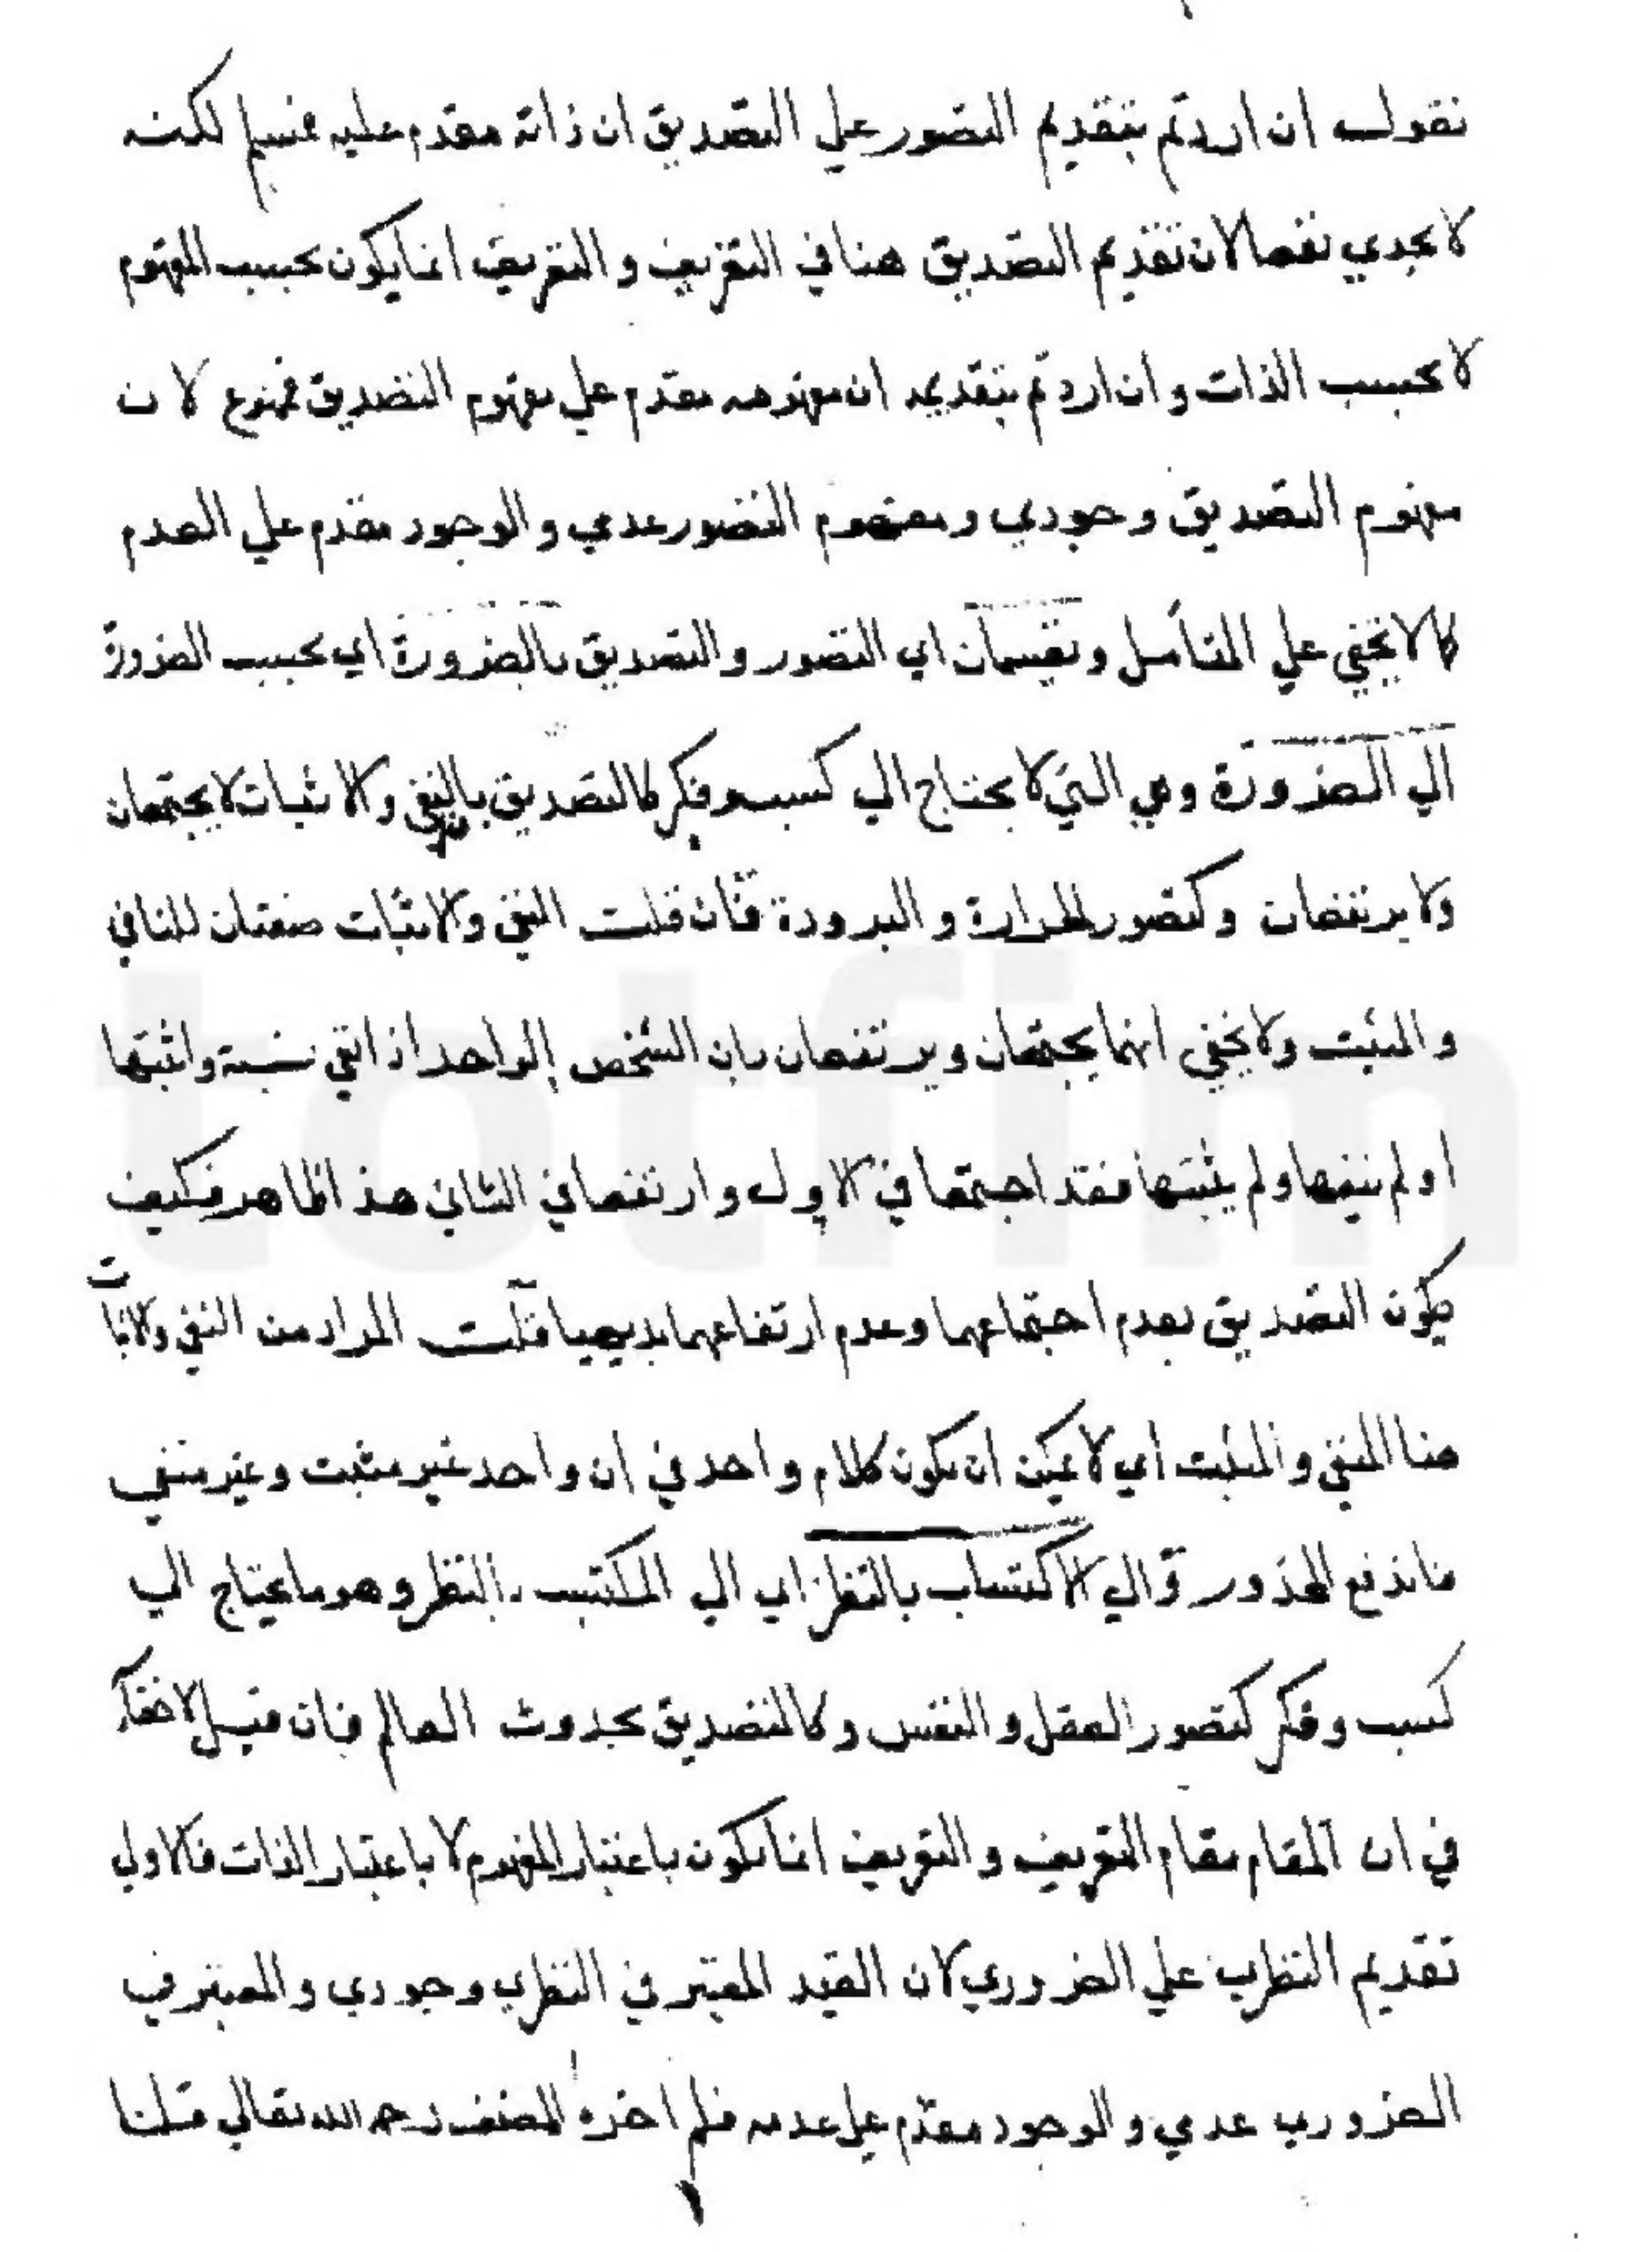 نقول ان اردتم بتقديم التصور علي التصديق ان ذاته مقدم عليه فمسلم لكنه
لا يجدي نفعا لان تقديم التصديق هنا في التعريف و التعريف انما يكون بحسب المفهوم
لا بحسب الذات و ان اردتم بتقديمه ان مفهومه مقدم علي مفهوم التصديق فممنوع لان
مفهوم التصديق وجودي و مفهوم التصور عدمي و الوجود مقدم علي العدم
كما لا يخفي علي المتأمل و يقسمان اي التصور و التصديق بالضرورة اي بحسب الضرورة
الي الضرورة وهي التي لا يحتاج الي كسب و فكر كالتصديق بان النفي و الاثبات لا يجتمعان
ولا يرتفعان و كتصور الحرارة و البرودة فان قلت النفي و الاثبات صفتان للنافي
و المثبت ولا يخفي انهما يجتمعان و يرتفعان بان الشخص الواحد اذا نفي نسبة و اثبتها
او لم ينفها و لم يثبتها فقد اجتمعا في الاول و ارتفعا في الثاني هذا ظاهر فكيف
يكون التصديق بعدم اجتماعهما وعدم ارتفاعهما بديهيا قلت المراد من النفي و الاثبات
هنا المنفي و المثبت اي لا يمكن ان يكون كلام واحد في ان واحد غير مثبت و غير منفي
فاندفع المحذور و الي الاكتساب بالنظر اي الي المكتسب بالنظر و هو ما يحتاج الي
كسب و فكر كتصور العقل و النفس و كالتصديق بحدوث العالم فان قيل لا خفاء
في ان المقام مقام التعريف و التعريف انما يكون باعتبار المفهوم لا باعتبار الذات فالاولي
تقديم النظري علي الضروري لان القيد المعتبر في النظري وجودي و المعتبر في
الضروري عدمي و الوجود مقدم علي عدمه فلم اخره المصنف رحمه الله تعالي قلنا